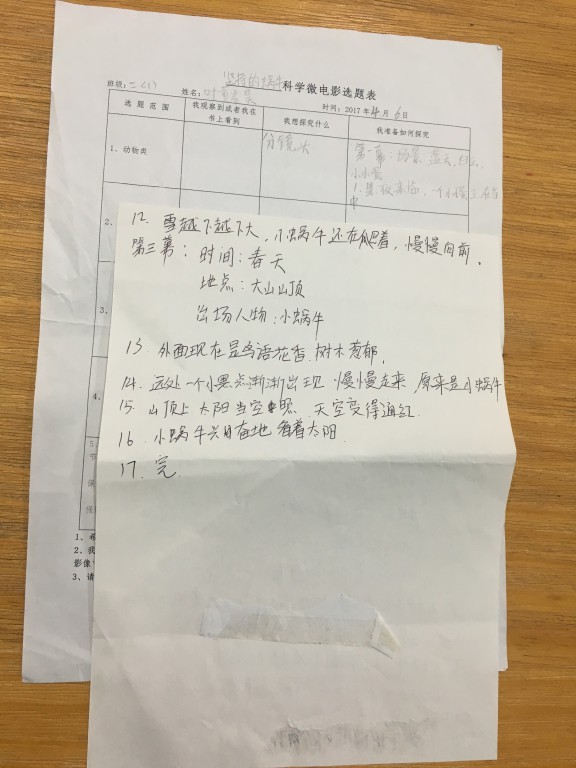 坚持的蜗牛科学微电影选题表
班级：二（1） 姓名： 时间：2017年4月6日
选题范围 我观察到或者我在书上看到 我想探究什么 我准备如何探究
1、动物类 分镜头 第一幕：场景
小小家
1.黑夜来临，一个小
2、
3、
4、
5、
1、
2、我
影像
3、请
12. 雪越下越大，小蜗牛还在爬着，慢慢向前。
第三幕：时间：春天
地点：大山山顶
出场人物：小蜗牛
13. 外面现在是鸟语花香，树木葱郁。
14. 远处一个小黑点渐渐出现 慢慢走来 原来是小蜗牛
15. 山顶上 太阳当空照 天空变得通红.
16. 小蜗牛兴奋地看着太阳.
17. 完.